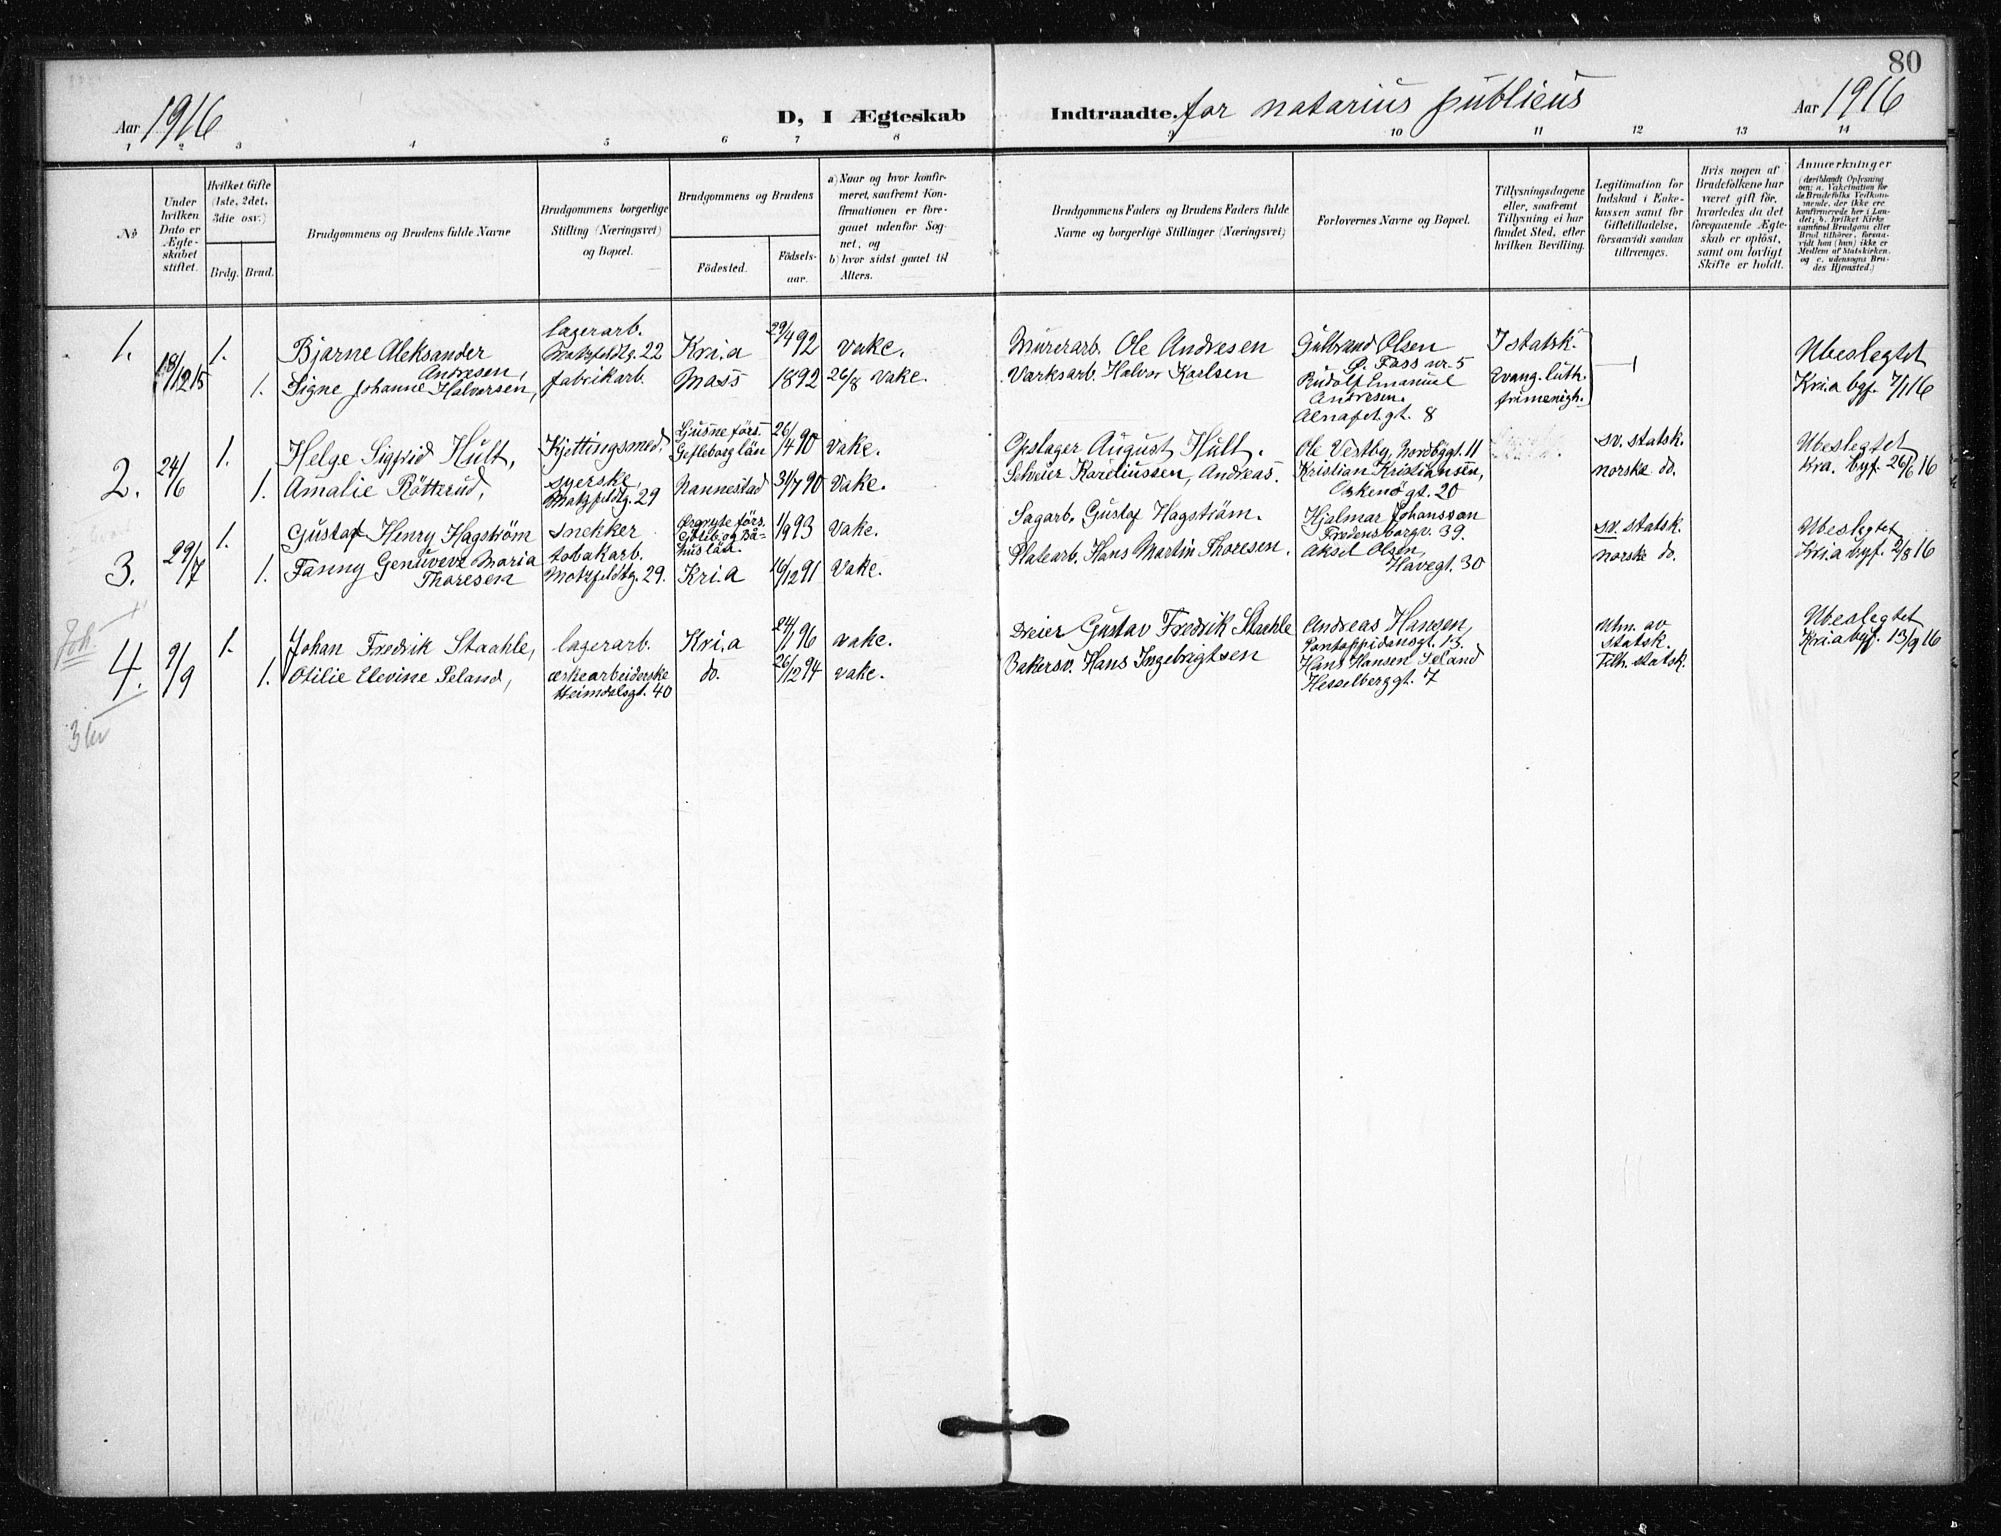 80
Aar 1916
D, I Ægteskab Indtraadte. for notarius publicus
Aar 1916
1 2 3 4 5 6 7 8 9 10 11 12 13 14
No
Under hvilken Dato er Ægteskabet stiftet.
Hvilket Gifte (1ste, 2det, 3die osv.)
Brdg. Brud.
Brudgommens og Brudens fulde Navne
Brudgommens borgerlige Stilling (Næringsvei) og Bopæl.
Brudgommens og Brudens
Födested.
Födselsaar.
a) Naar og hvor konfirmeret, saafremt Konfirmationen er foregaaet udenfor Sognet, og
b) hvor sidst gaaet til Alters.
Brudgommens Faders og Brudens Faders fulde Navne og borgerlige Stillinger (Næringsvei)
Forlovernes Navne og Bopæl.
Tillysningsdagene eller, saafremt Tillysning ei har fundet Sted, efter hvilken Bevilling.
Legitimation for Indskud i Enkekassen samt for Giftetilladelse, forsaavidt saadan tiltrænges.
Hvis nogen af Brudefolkene har været gift för, hvorledes da det foregaaende Ægteskab er oplöst, samt om lovligt Skifte er holdt.
Anmærkninger
(deriblandt Oplysning om: a. Vakcination for de Brudefolks Vedkommende, der ikke ere konfirmerede her i Landet; b. hvilket Kirkesamfund Brudgom eller Brud tilhörer, forsaavidt han (hun) ikke er Medlem af Statskirken, og c. udensogns Brudes Hjemsted.)
1. 18/12 15 1.
Bjarne Aleksander Andresen,
lagerarb. Motzfeldtg. 22
Kria
29/4 92
vake.
Murerarb. Ole Andresen
Gulbrand Olsen
I statsk.
Ubeslegtet
1.
Signe Johanne Halvorsen,
fabrikarb.
Moss
1892
26/8 vake.
Værksarb. Halvor Karlsen
Rudolf Emanuel Andresen.
Alnafet.gt. 8
Evang. luth. frimenigh.
Kria byf. 7/1 16
2. 24/6 16 1.
Helge Sigfrid Hult,
Kjettingsmed.
Ljusne förs. Gefleborg län
26/4 90
vake.
Opslager August Hult.
Ole Vestby, Nordbygt. 11
sv. statsk.
Ubeslegtet
1.
Amalie Røtterud,
syerske, Motzfeldtg. 29
Nannestad
31/7 90
vake.
Selveier Kareliussen, Andreas.
Kristian Kristiansen,
gt. 20
norske do.
Kra. byf. 26/6 16
3. 29/7 1.
Gustaf Henry Hagström
snekker
Ørgryte förs. Göteb. og Bohus län.
1/9 93
vake.
Sagarb. Gustaf Hagström.
Hjalmar Johansson
Fredensborgv. 39.
sv. statsk.
Ubeslegtet
1.
Fanny Genuveve Maria Thoresen
tobakarb. Motzfeldtg. 29.
Kria
16/12 91
vake.
Platearb. Hans Martin Thoresen.
Aksel Olsen,
Havegt. 30
norske do.
Kria byf. 2/8 16
4. 9/9 1.
Johan Fredrik Staahle,
lagerarb.
Kria
24/1 96
vake.
Dreier Gustav Fredrik Staahle
Andreas Hansen,
Pontoppidansgt. 13.
Utm. av statsk.
Ubeslegtet
1.
Otilie Elevine Seland,
æskearbeiderske Heimdalsgt. 40
do.
26/12 94
vake.
Bakersv. Hans Ingebrigtsen
Hans Hansen Seland
Hesselberggt. 7
Tilh. statsk.
Kria byf. 13/9 16